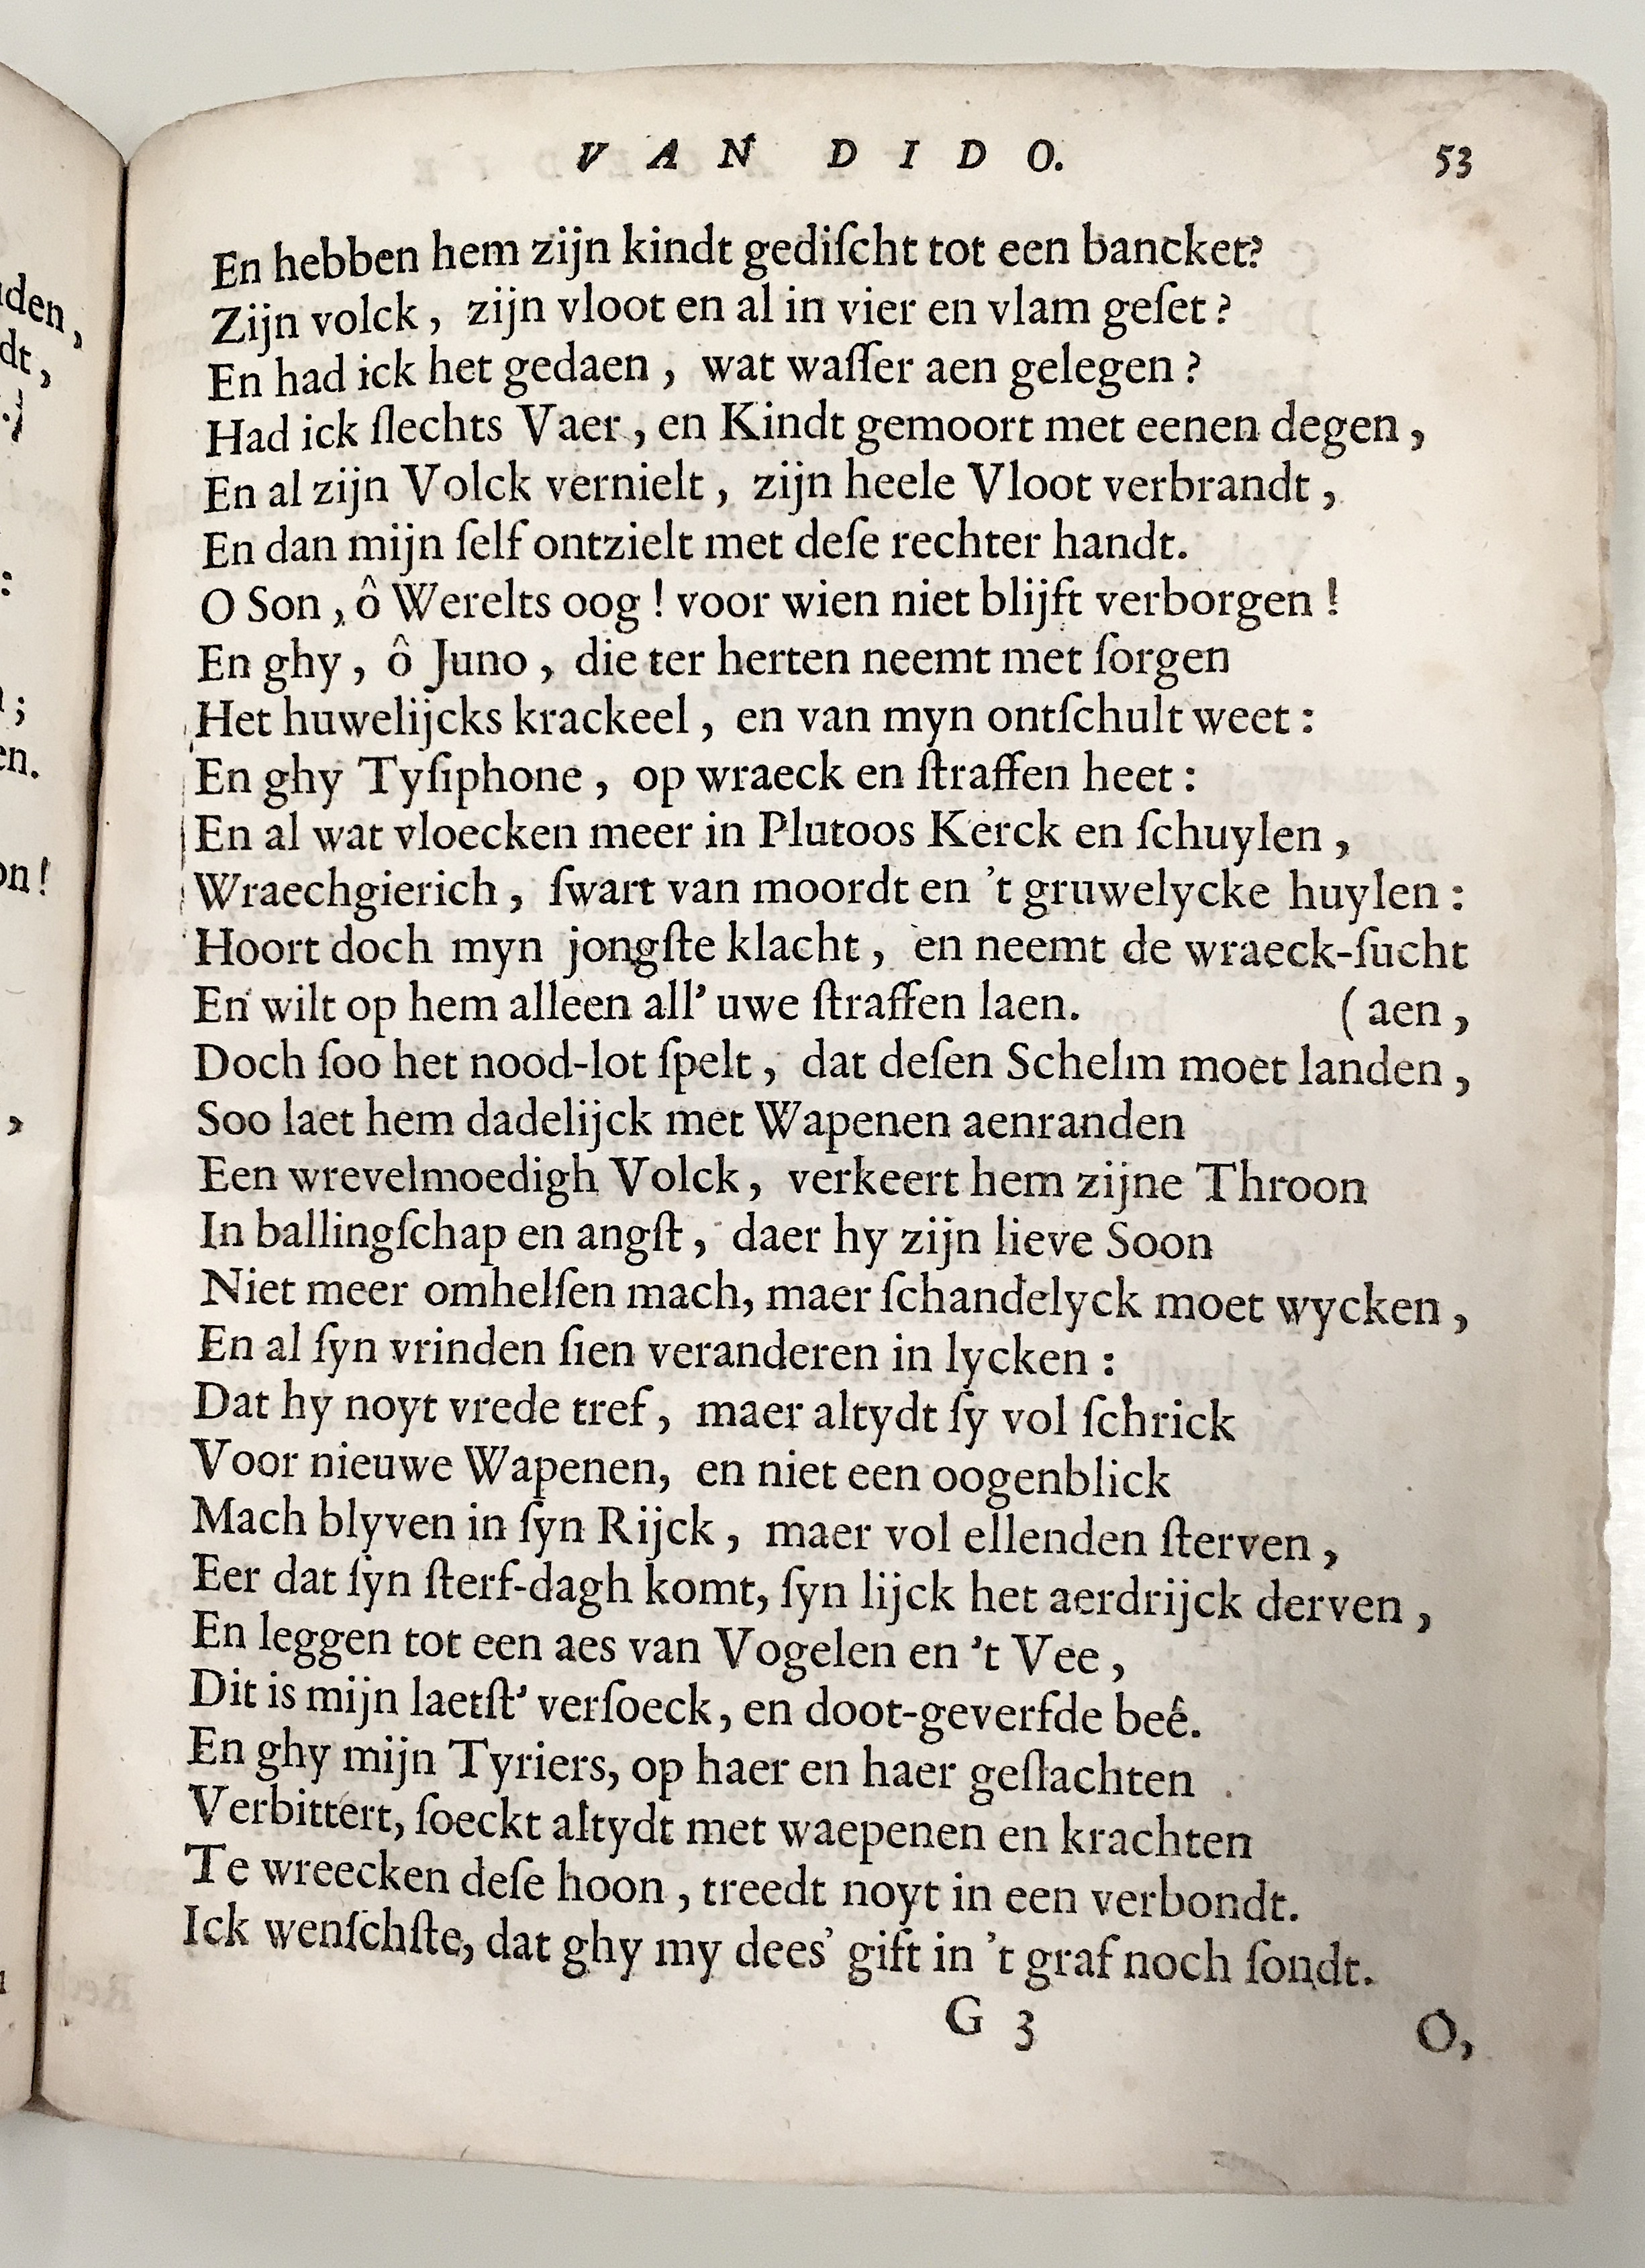 VAN DIDO. 53
En hebben hem zijn kindt gediſcht tot een bancket?
Zijn volck, zijn vloot en al in vier en vlam geſet?
En had ick het gedaen, wat waſſer aen gelegen?
Had ick ſlechts Vaer, en Kindt gemoort met eenen degen,
En al zijn Volck vernielt, zijn heele Vloot verbrandt,
En dan mijn ſelf ontzielt met deſe rechter handt.
O Son, ô Werelts oog! voor wien niet blijft verborgen!
En ghy, ô Juno, die ter herten neemt met ſorgen
Het huwelijcks krackeel, en van myn ontſchult weet:
En ghy Tyſiphone, op wraeck en ſtraffen heet:
En al wat vloecken meer in Plutoos Kerck en ſchuylen,
Wraechgierich, ſwart van moordt en 't gruwelycke huylen:
Hoort doch myn jongſte klacht, en neemt de wraeck-ſucht
En wilt op hem alleen all' uwe ſtraffen laen. (aen,
Doch ſoo het nood-lot ſpelt, dat deſen Schelm moet landen,
Soo laet hem dadelijck met Wapenen aenranden
Een wrevelmoedigh Volck, verkeert hem zijne Throon
In ballingſchap en angſt, daer hy zijn lieve Soon
Niet meer omhelſen mach, maer ſchandelyck moet wycken,
En al ſyn vrinden ſien veranderen in lycken:
Dat hy noyt vrede tref, maer altydt ſy vol ſchrick
Voor nieuwe Wapenen, en niet een oogenblick
Mach blyven in ſyn Rijck, maer vol ellenden ſterven,
Eer dat ſyn ſterf-dagh komt, ſyn lijck het aerdrijck derven,
En leggen tot een aes van Vogelen en 't Vee,
Dit is mijn laetſt' verſoeck, en doot-geverfde beê.
En ghy mijn Tyriers, op haer en haer geſlachten
Verbittert, ſoeckt altydt met waepenen en krachten
Te wreecken deſe hoon, treedt noyt in een verbondt.
Ick wenſchſte, dat ghy my dees' gift in 't graf noch ſondt.
G 3 O,
den,
dt,
:
;
en.
on!
,